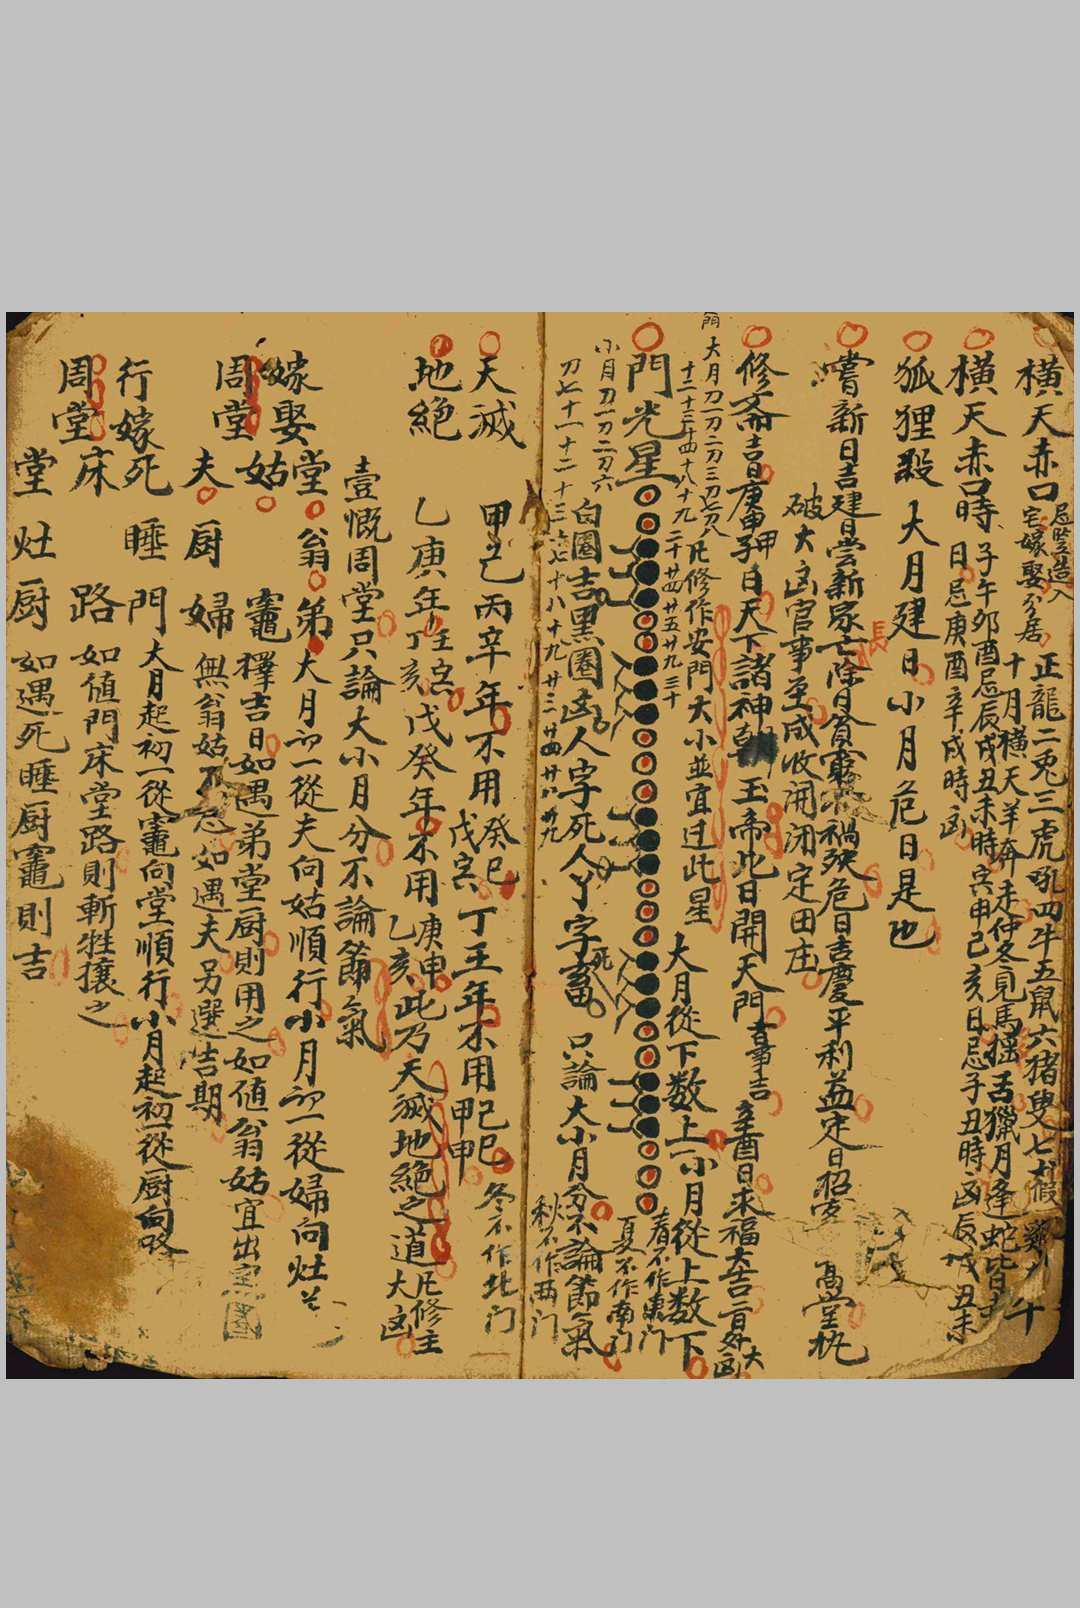 橫天赤口 忌豎造入宅嫁娶分居 正龍二兎三虎吼四牛五鼠六猪叟七犬
十月橫天羊奔走仲冬見馬搖舌獵月逢蛇皆
橫天赤口時 子午夘酉忌辰戌丑未時寅申己亥日忌子丑時凶辰戌丑未
日忌庚酉辛戌時凶
狐狸殺 大月建日小月危日是也
嘗新日吉建日嘗新家亡長除日貧窮 禍殃危日吉慶平利益定日招 高堂執
破大凶官事至成收開闭定田庄
修斋吉日庚申甲子日天下諸神朝玉帝此日開天門百事吉辛酉日来福大吉
門光星
大月從下数上小月從上数下
凡修作安門大小並宜过此星
春不作東门
夏不作南门
白圈吉黑圈凶人字死人丫字畜死只論大小月分不論節氣
秋不作西门
冬不作北门
天滅 甲己丙辛年不用癸巳戊寅 丁壬年不用己巳甲申
地絕 乙庚年壬寅丁亥 戊癸年不用庚申乙亥此乃天滅地絕之道凡修主大凶
壹慨周堂只論大小月分不論節氣
嫁娶周堂
堂 翁 弟 大月初一從夫向姑順行小月初一從婦向灶
姑 竈 擇吉日如遇弟堂廚則用之如値翁姑宜出
夫 厨 婦 無翁姑不忌如遇夫另選吉期
行嫁周堂
死 睡 門 大月起初一從竈向堂順行小月起初一從厨向路
床 路 如値門床堂路則斬牲攘之
堂 灶 厨 如遇死睡厨竈則吉